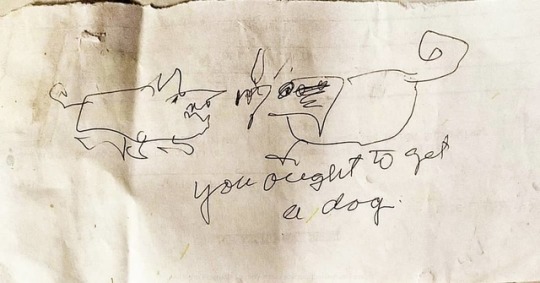 you ought to get
a dog.